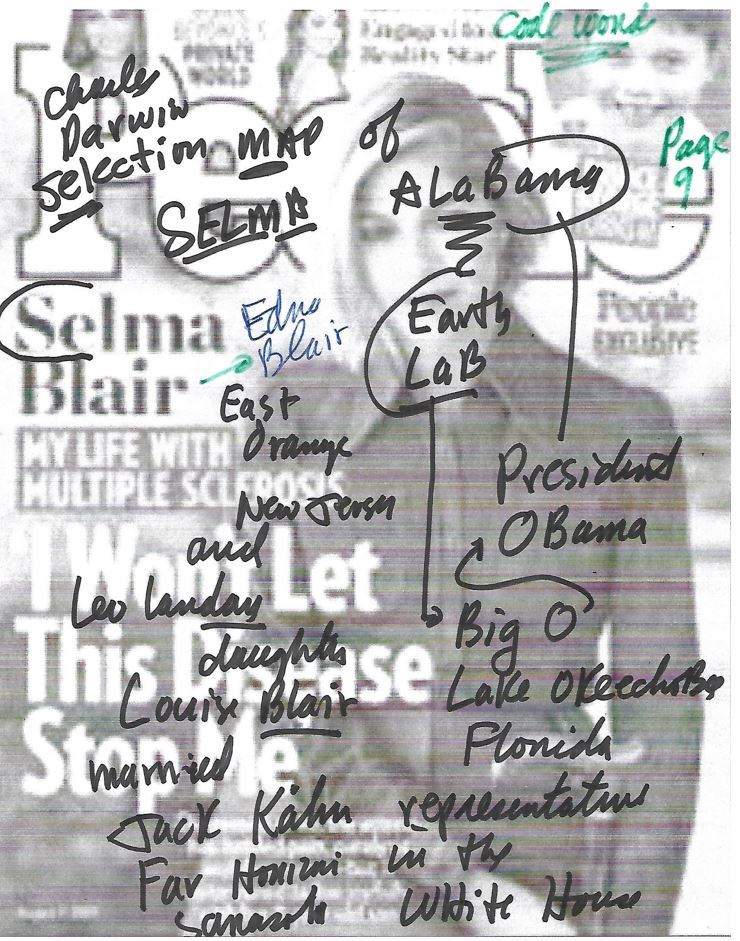 Engaged to a
Reality Star
code word
PRIVATE
WORLD
Page
9
Charles
Darwin
Selection MAP of
SELMA
ALaBama
People
EXCLUSIVE
Selma
Blair
Edna
Blair
Earth
LaB
East
Orange
New Jersey
MY LIFE WITH
MULTIPLE SCLEROSIS
President
OBama
and
Leo Landay
daughter
Louise Blair
married
Jack Kahn
Far Horizni
'I Won't Let
This Disease
Stop Me
Big O
Lake OKeechoBee
Florida
representative
in the
White House